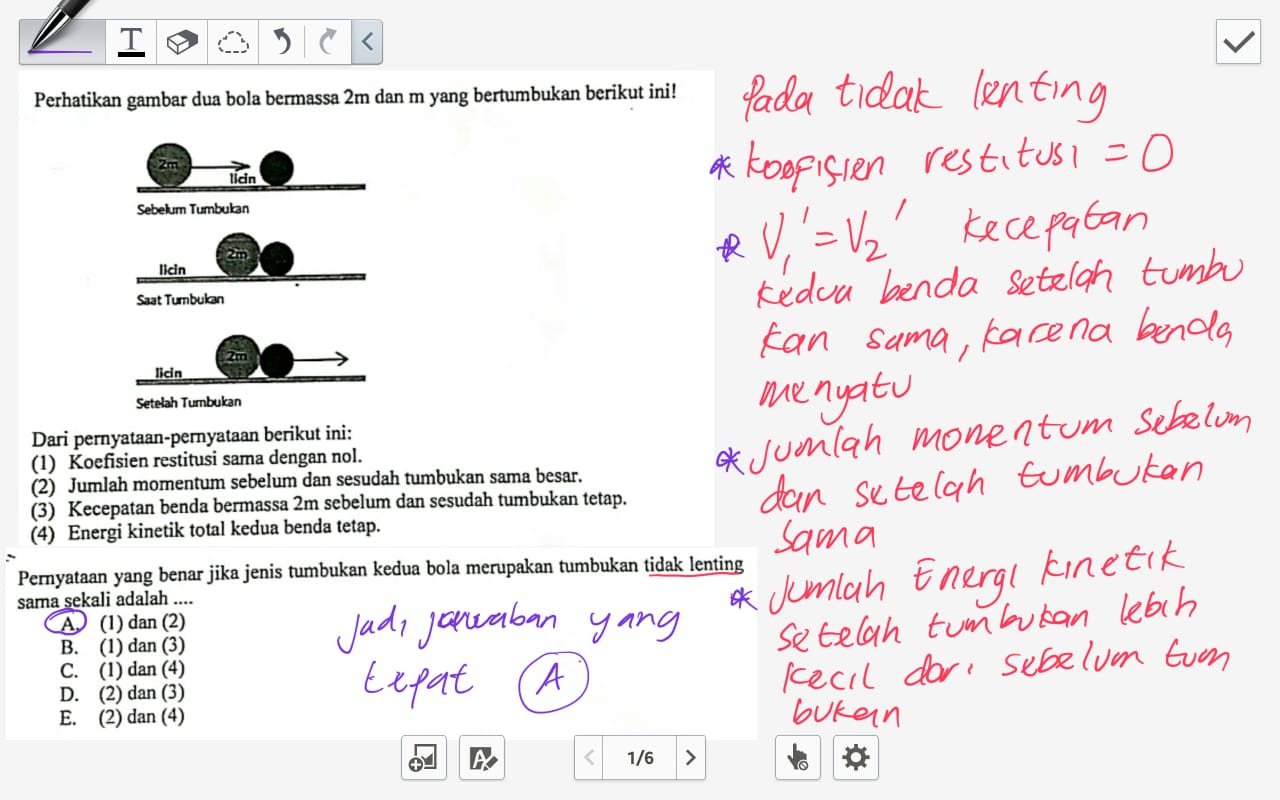 T
Perhatikan gambar dua bola bermassa 2m dan m yang bertumbukan berikut ini!
2m
licin
Sebelum Tumbukan
2m
licin
Saat Tumbukan
2m
licin
Setelah Tumbukan
Dari pernyataan-pernyataan berikut ini:
(1) Koefisien restitusi sama dengan nol.
(2) Jumlah momentum sebelum dan sesudah tumbukan sama besar.
(3) Kecepatan benda bermassa 2m sebelum dan sesudah tumbukan tetap.
(4) Energi kinetik total kedua benda tetap.
Pernyataan yang benar jika jenis tumbukan kedua bola merupakan tumbukan tidak lenting
sama sekali adalah ....
A. (1) dan (2)
B. (1) dan (3)
C. (1) dan (4)
D. (2) dan (3)
E. (2) dan (4)
Jadi jawaban yang
tepat A
Pada tidak lenting
* koefisien restitusi = 0
* V₁' = V₂' kecepatan
kedua benda setelah tumbu
kan sama, karena benda
menyatu
* Jumlah momentum sebelum
dan setelah tumbukan
sama
* Jumlah Energi kinetik
setelah tumbukan lebih
kecil dari sebelum tum
bukan
A
1/6